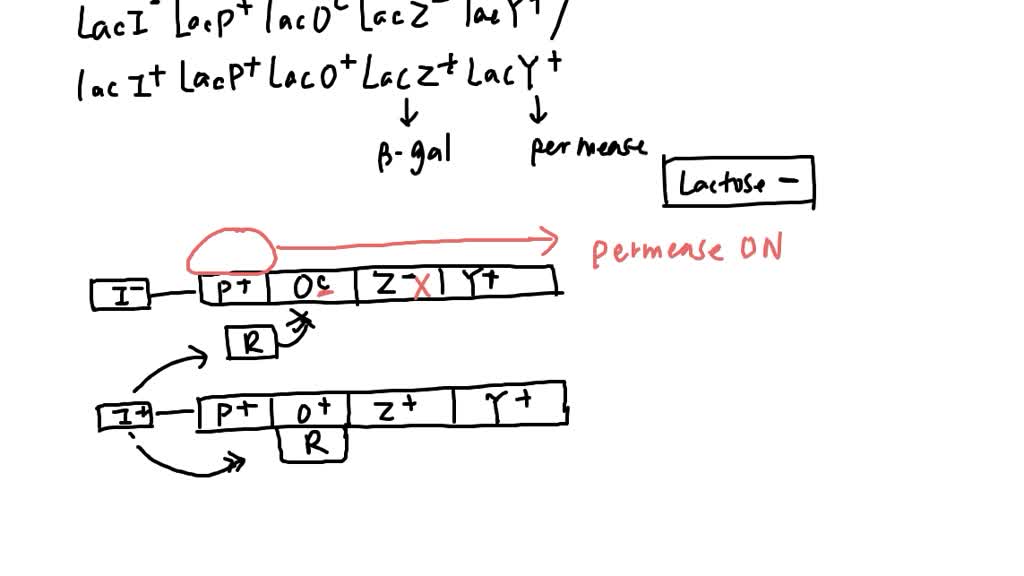 LacI⁻ LacP⁺ lacOᶜ LacZ⁻ lacY⁺ /
lac I⁺ LacP⁺ LacO⁺ LacZ⁺ LacY⁺
β-gal permease
Lactose −
permease ON
I⁻ P⁺ Oᶜ Z⁻ X Y⁺
R
I⁺ P⁺ O⁺ Z⁺ Y⁺
R